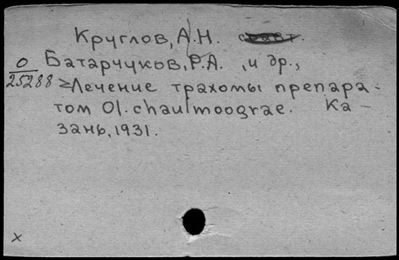 Круглов, А.Н.
Батарчуков, Р.А. , и др.,
О
25288
Лечение трахомы препара-
том Ol. chaulmoograe. Ка-
зань, 1931.
x